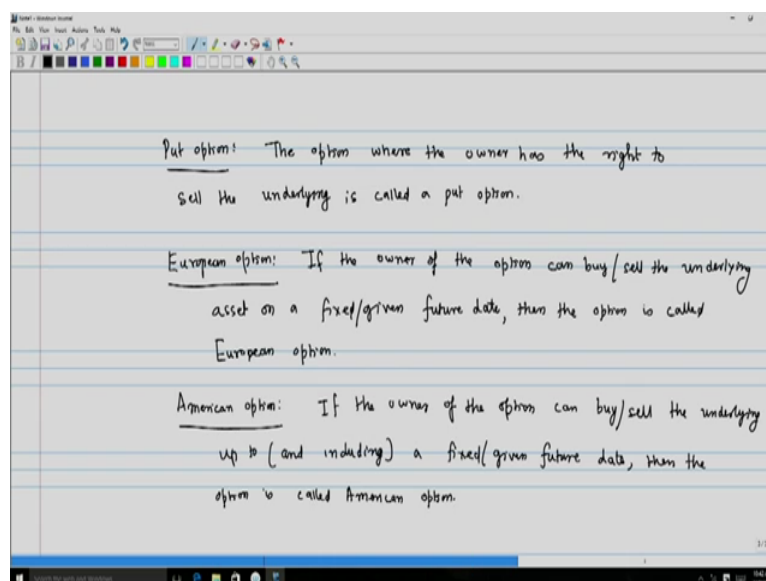 File Edit View Insert Actions Tools Help
B I
Put option: The option where the owner has the right to
sell the underlying is called a put option.
European option: If the owner of the option can buy/sell the underlying
asset on a fixed/given future date, then the option is called
European option.
American option: If the owner of the option can buy/sell the underlying
up to (and including) a fixed/given future date, then the
option is called American option.
Search the web and Windows